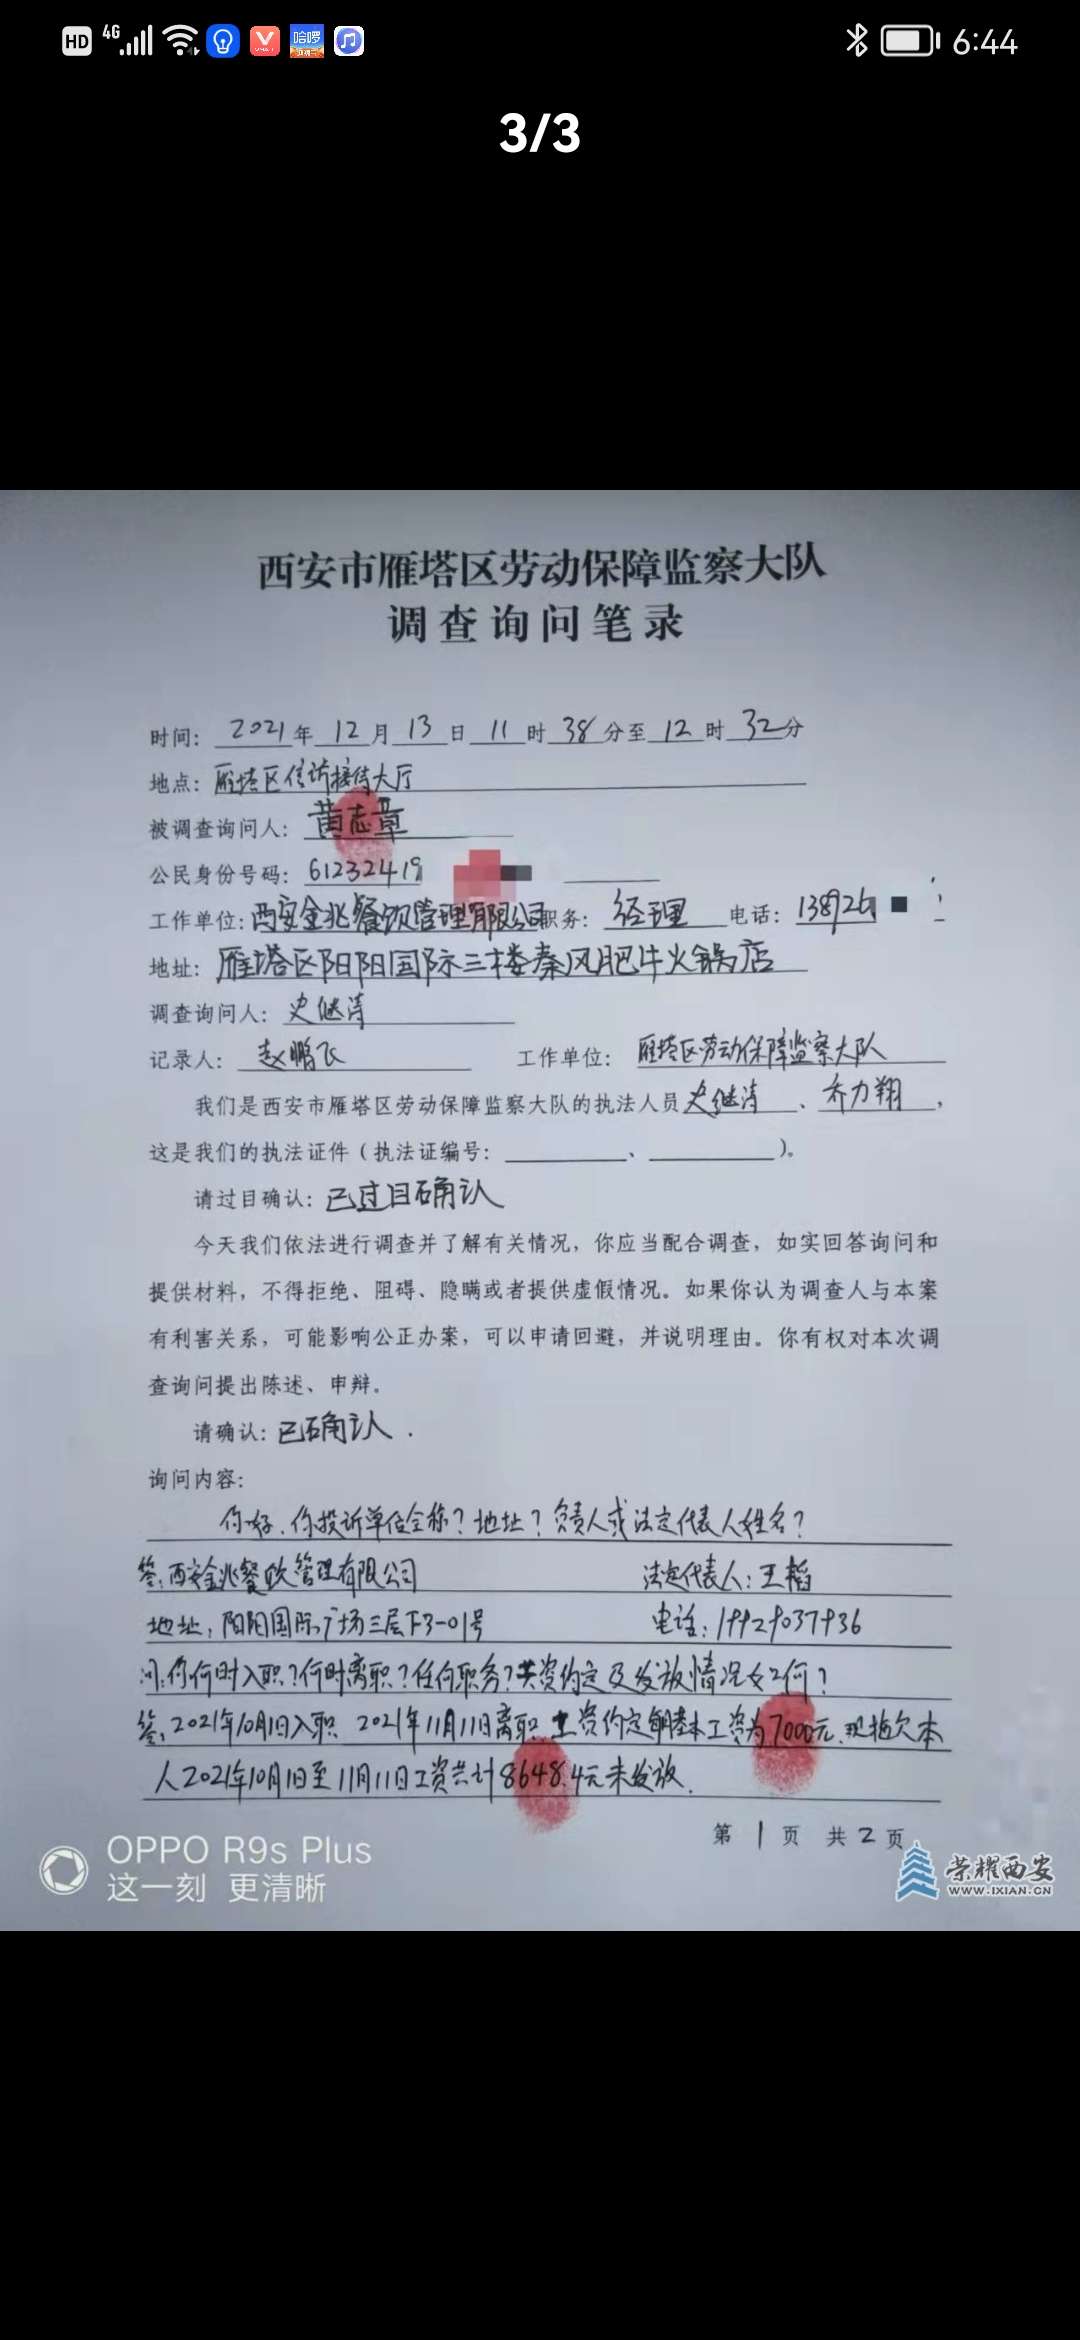 HD 4G 哈啰 6:44
3/3
西安市雁塔区劳动保障监察大队
调查询问笔录
时间: 2021年12月13日11时38分至12时32分
地点: 雁塔区信访接待大厅
被调查询问人: 黄志章
公民身份号码: 61232419
工作单位: 西安金兆餐饮管理有限公司 职务: 经理 电话: 138926
地址: 雁塔区阳阳国际三楼秦风肥牛火锅店
调查询问人: 史继涛
记录人: 赵鹏飞 工作单位: 雁塔区劳动保障监察大队
我们是西安市雁塔区劳动保障监察大队的执法人员史继涛、乔力翔,
这是我们的执法证件（执法证编号: 、 ）。
请过目确认: 已过目确认
今天我们依法进行调查并了解有关情况，你应当配合调查，如实回答询问和
提供材料，不得拒绝、阻碍、隐瞒或者提供虚假情况。如果你认为调查人与本案
有利害关系，可能影响公正办案，可以申请回避，并说明理由。你有权对本次调
查询问提出陈述、申辩。
请确认: 已确认.
询问内容:
你好、你投诉单位全称？地址？负责人或法定代表人姓名？
答: 西安金兆餐饮管理有限公司 法定代表人: 王韬
地址: 阳阳国际广场三层F3-01号 电话: 19929037936
问: 你何时入职？何时离职？任何职务？工资约定及发放情况如何？
答: 2021年10月1日入职 2021年11月11日离职 工资约定每月基本工资为7000元、现拖欠本
人2021年10月1日至11月11日工资共计8648.4元未发放.
第1页 共2页
OPPO R9s Plus
这一刻 更清晰
荣耀西安
WWW.IXIAN.CN